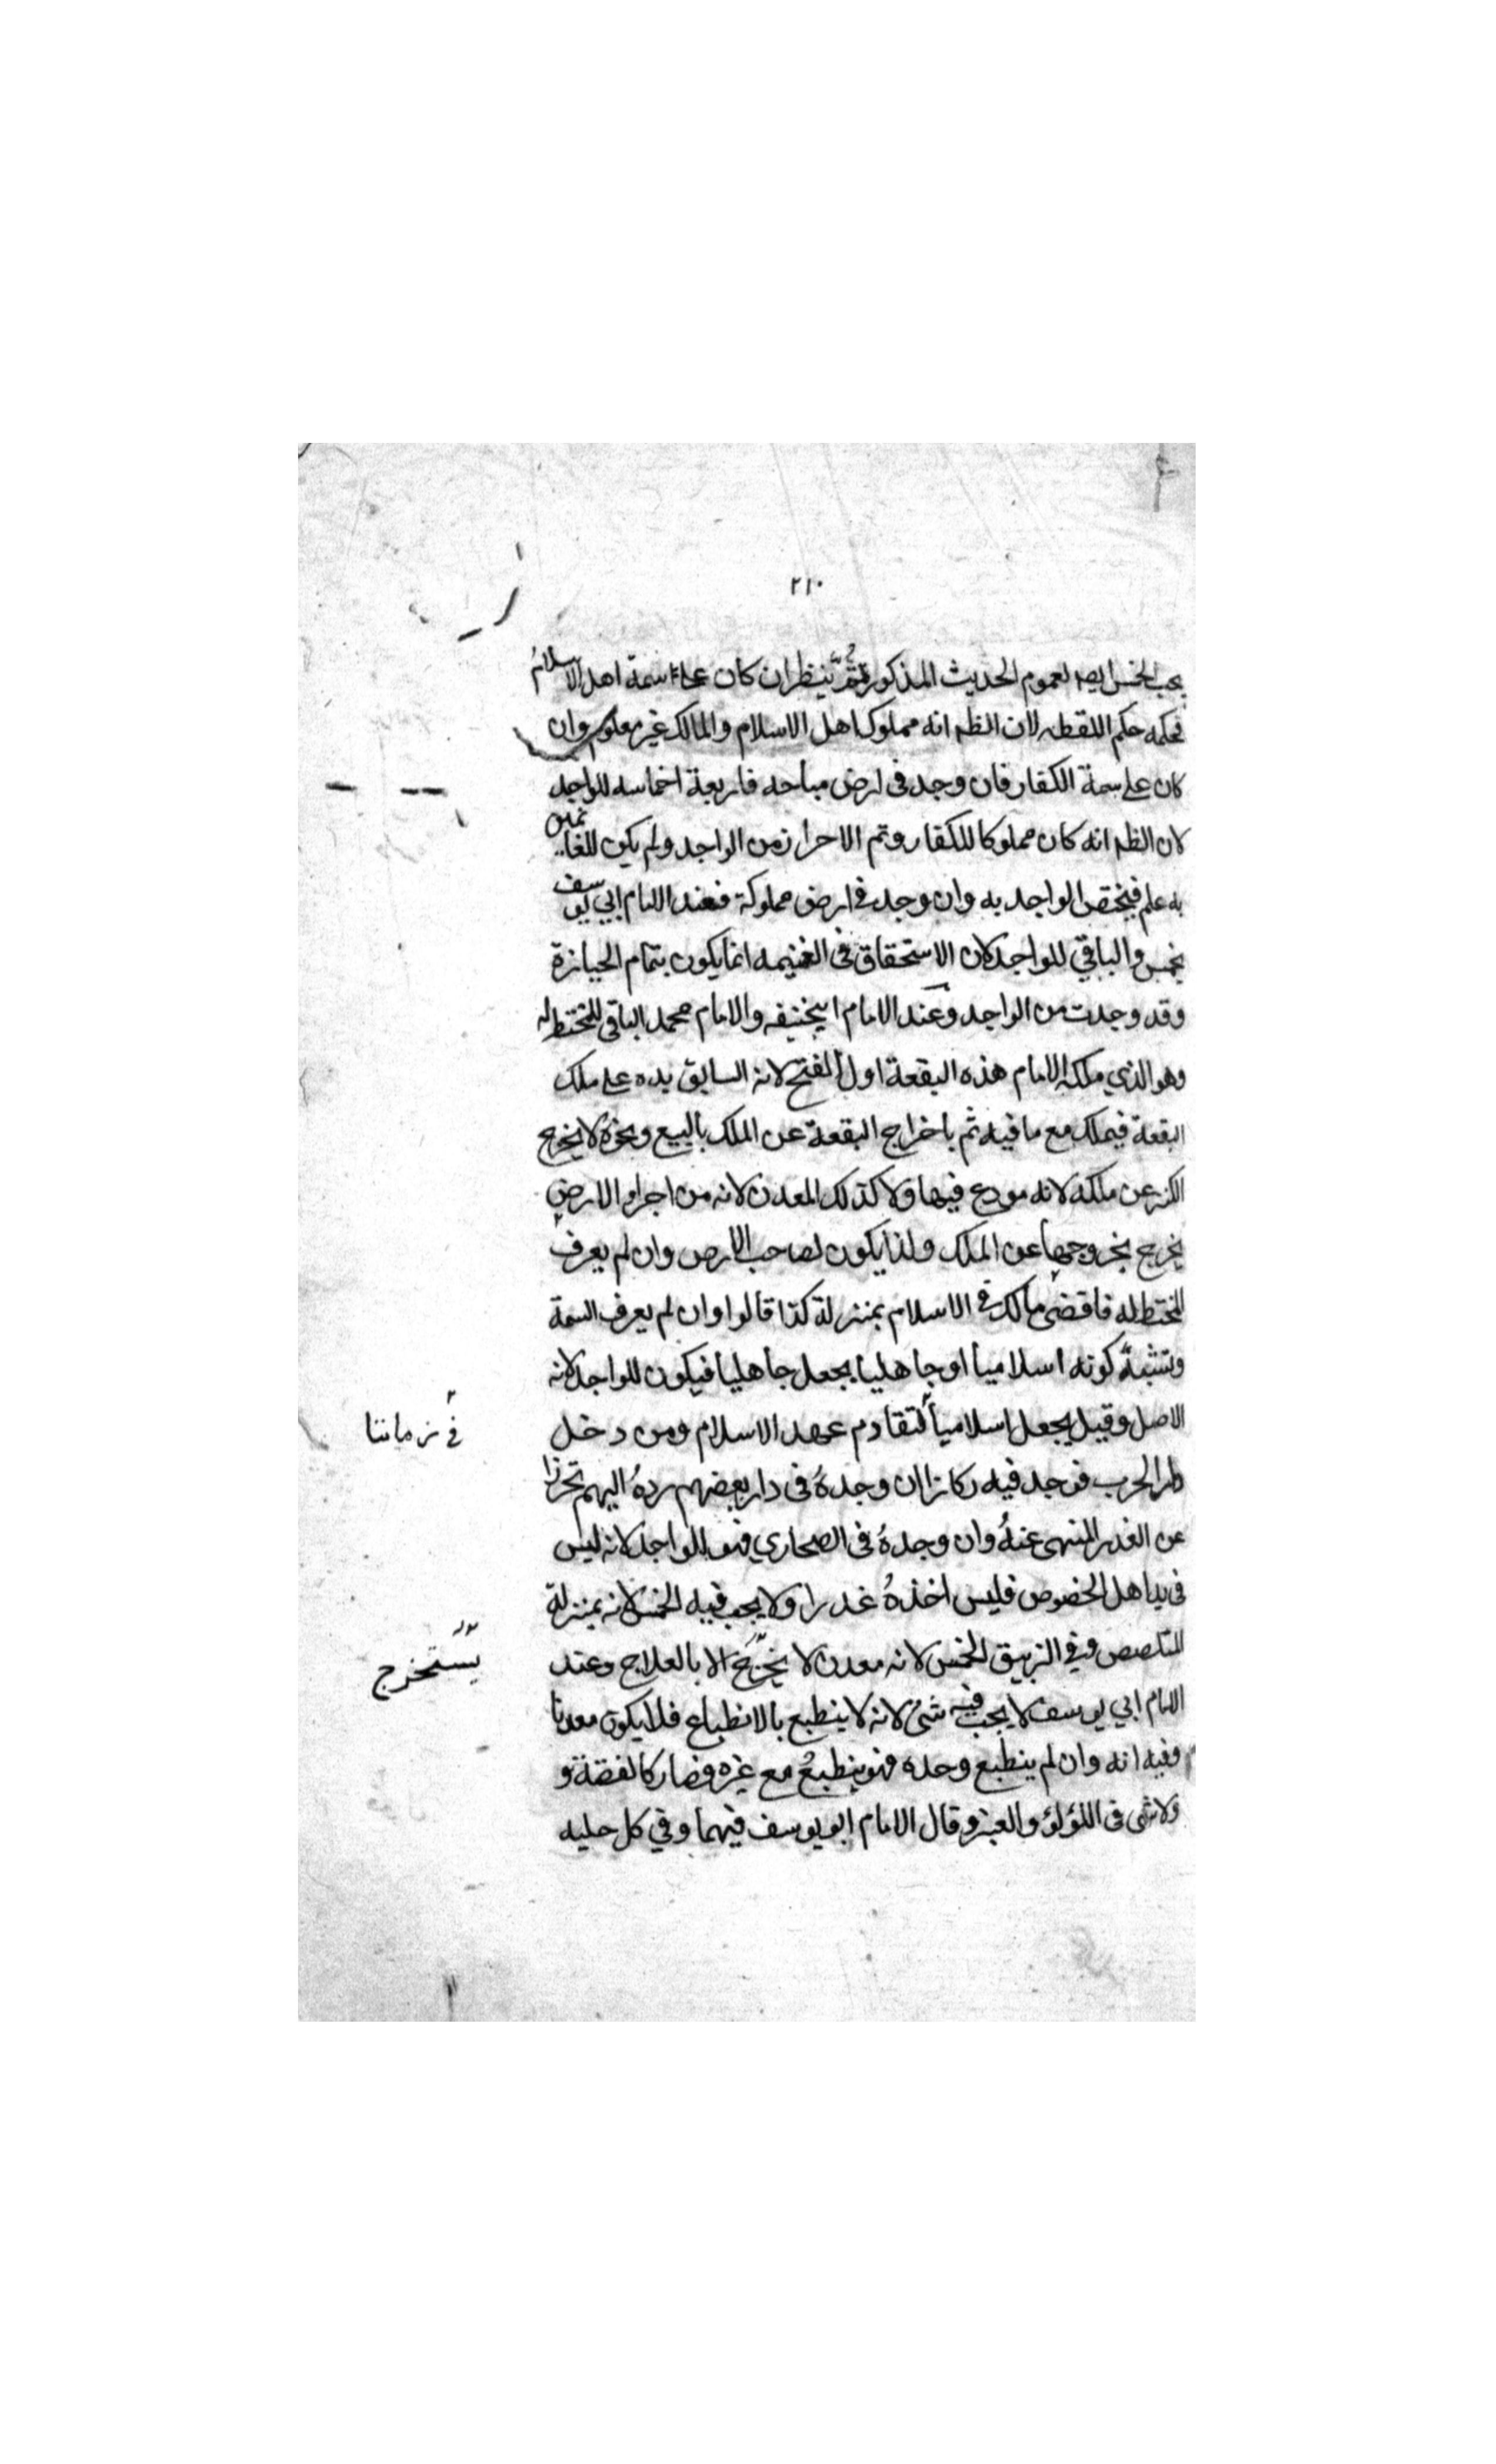 ٢١٠
يجب الخمس ايضا لعموم الحديث المذكور ثم ينظر ان كان علىه سمة اهل الاسلام
فحكمه حكم اللقطه لان الظه انه مملوك اهل الاسلام والمالك غير معلوم وان
كان على سمة الكفار فان وجد فى ارض مباحه فاربعة اخماسه للواجد
لان الظه انه كان مملوكا للكفار وتم الاحراز من الواجد ولم يكن للغانمين
به علم فيختص الواجد به وان وجد فى ارض مملوكة فعند الامام ابي يوسف
يخمس والباقي للواجد لان الاستحقاق فى الغنيمه انما يكون بتمام الحيازة
وقد وجدت من الواجد وعند الامام ابيحنيفه والامام محمد الباقى للمختط له
وهو الذي ملكه الامام هذه البقعة اول الفتح لانه السابق يده على ملك
البقعة فيملك مع ما فيه ثم باخراج البقعة عن الملك بالبيع ونحوه لا يخرج
الكنز عن ملكه لانه مودع فيها ولا كذلك المعدن لانه من اجزاء الارض
يخرج بخروجها عن الملك ولذا يكون لصاحب الارض وان لم يعرف
المختط له فاقضى مالك فى الاسلام بمنزلة كذا قالوا وان لم يعرف السمة
وتشبه كونه اسلاميا او جاهليا يجعل جاهليا فيكون للواجد لانه
الاصل وقيل يجعل اسلاميا لتقادم عهد الاسلام ومن دخل
فى زماننا
دار الحرب فوجد فيه ركازا ان وجده فى دار بعضهم رده اليهم تحرزا
عن الغدر المنهى عنه وان وجده فى الصحاري فهو للواجد لانه ليس
فى يد اهل الخصوص فليس اخذه غدرا ولا يجب فيه الخمس لانه بمنزلة
المتلصص وفي الزيبق الخمس لانه معدن لا يخرج الا بالعلاج وعند
يستخرج
الامام ابي يوسف لا يجب فيه شئ لانه لا ينطبع بالانطباع فلا يكون معدنا
وفيه انه وان لم ينطبع وحده فهو ينطبع مع غيره فصار كالفضة و
ولا شى فى اللؤلؤ والعنبر وقال الامام ابو يوسف فيهما وفي كل حليه